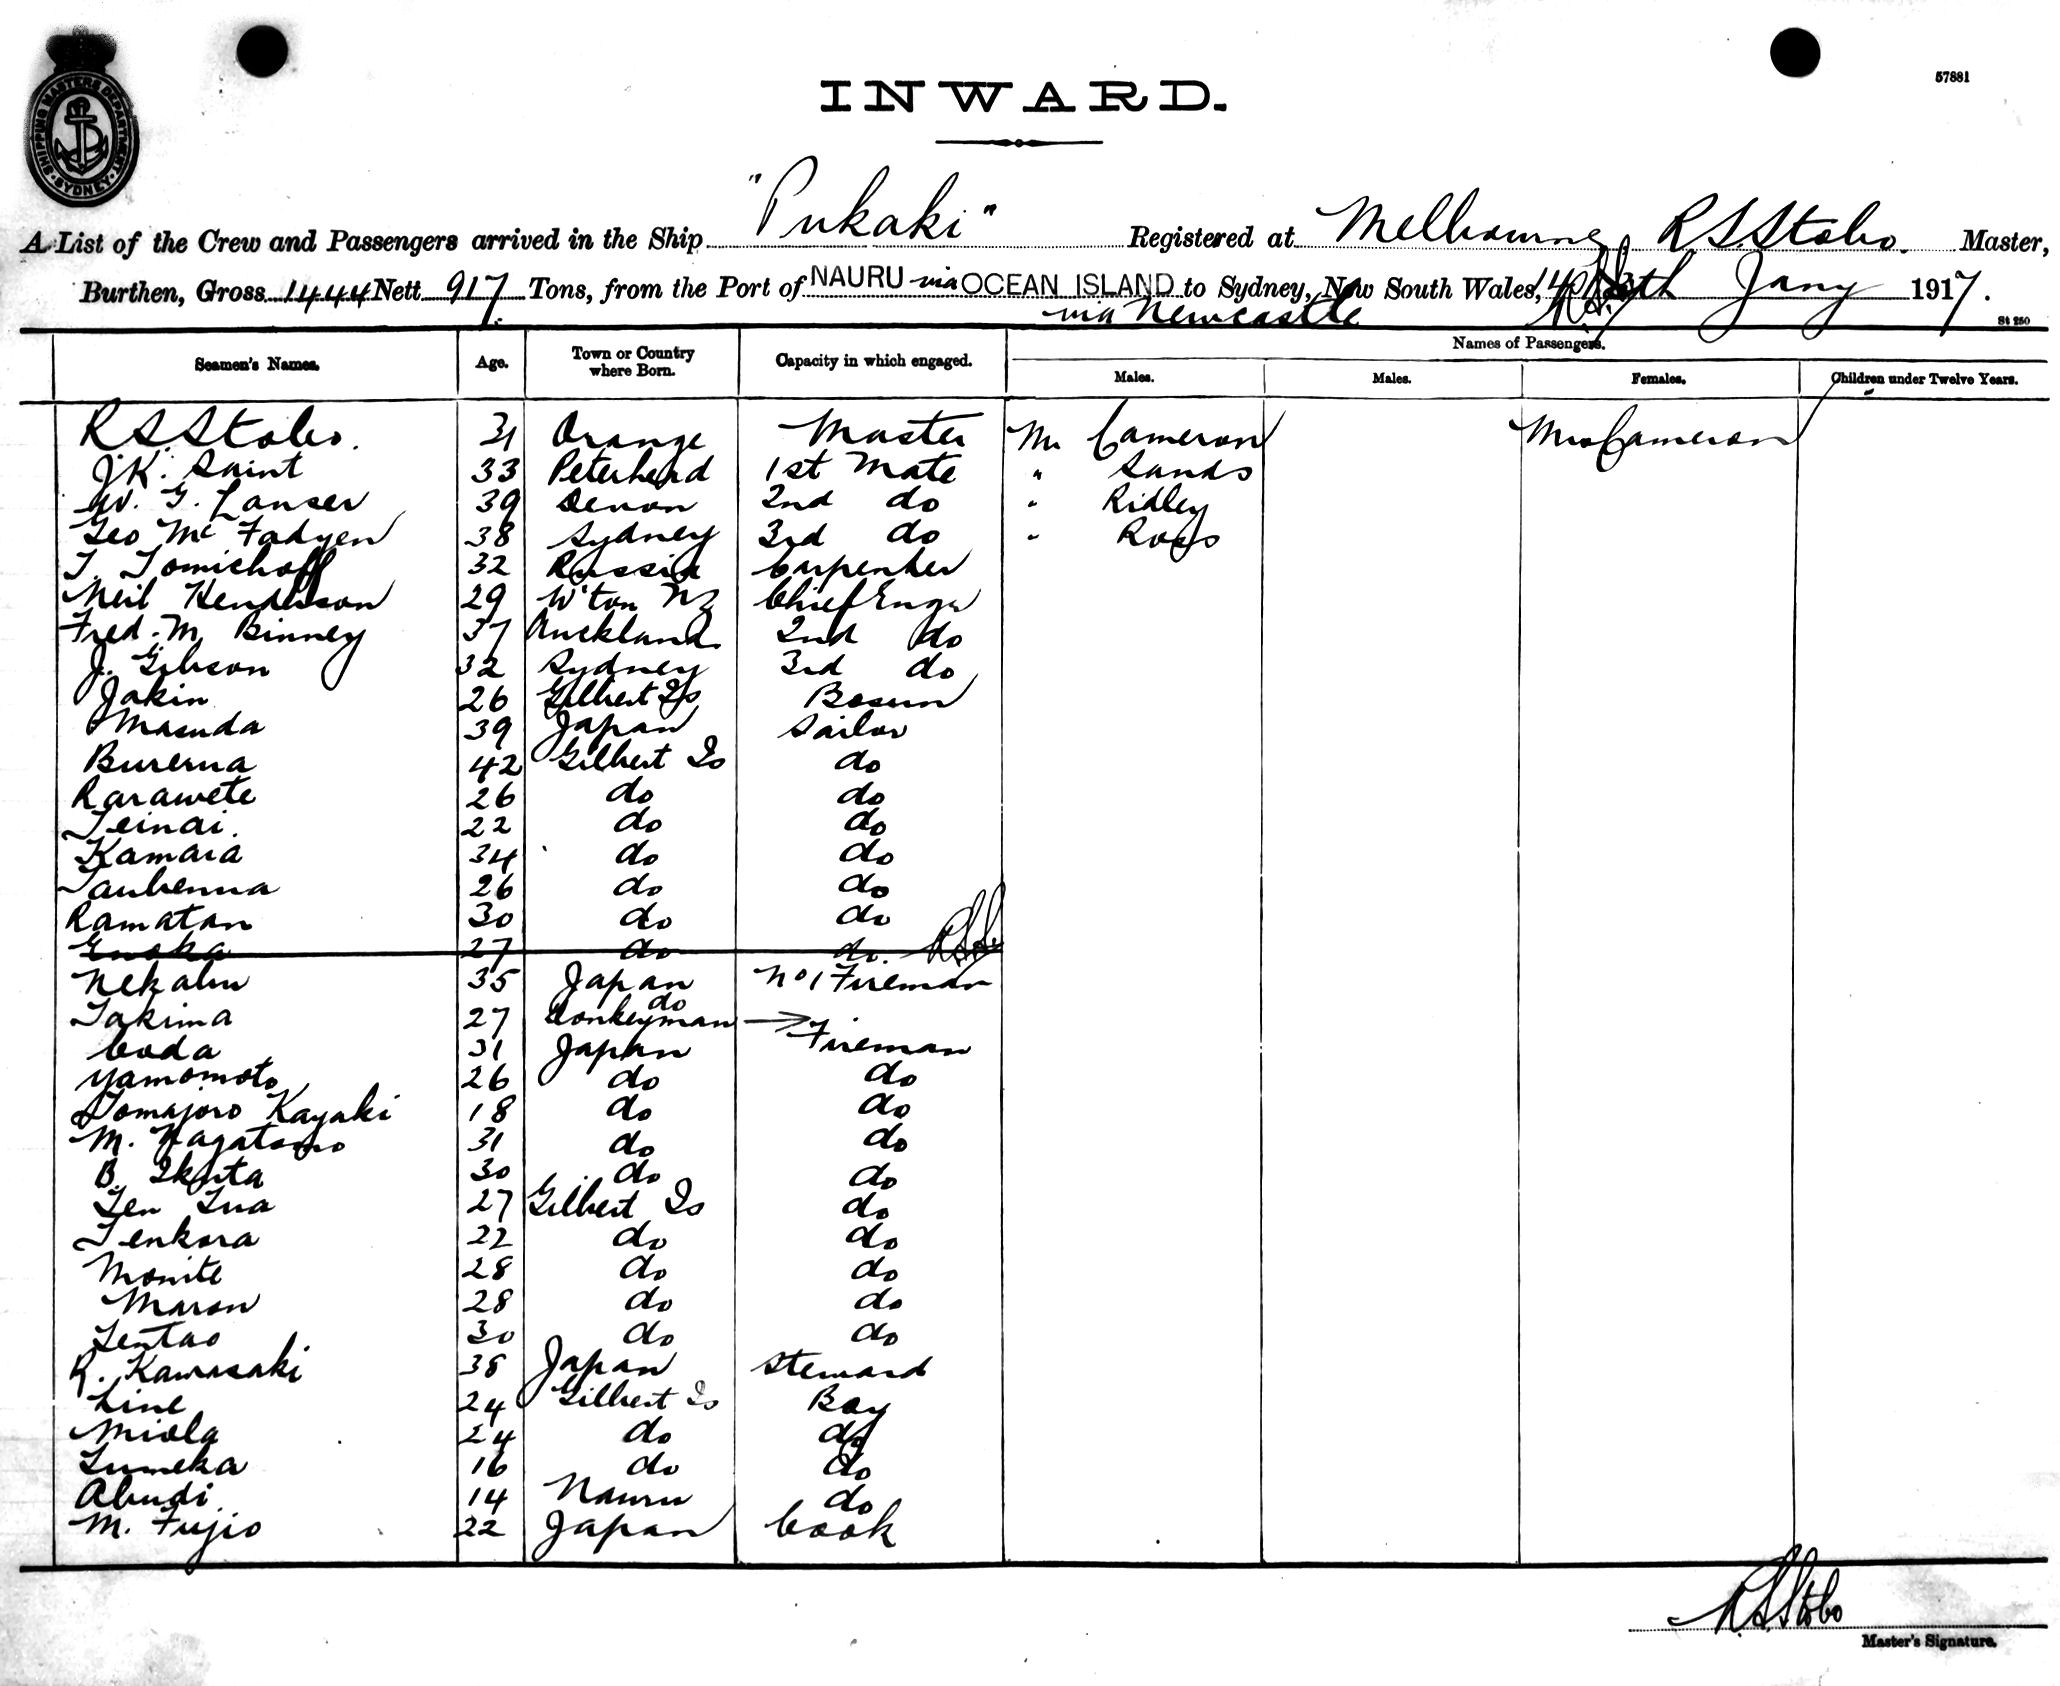 SHIPPING MASTERS DEPARTMENT SYDNEY
57881
INWARD.
A List of the Crew and Passengers arrived in the Ship "Pukaki" Registered at Melbourne R S. Stobo. Master,
Burthen, Gross 1444 Nett 917 Tons, from the Port of NAURU via OCEAN ISLAND to Sydney, New South Wales, Jany 1917.
via Newcastle
St 250
Seamen's Names. Age. Town or Country where Born. Capacity in which engaged. Names of Passengers.
Males. Males. Females. Children under Twelve Years.
R S Stobo. 31 Orange Master Mr Cameron Mrs Cameron
J K. Saint 33 Peterhead 1st Mate " Sands
W. G. Lanser 39 Devon 2nd do " Ridley
Geo McFadyen 38 Sydney 3rd do " Ross
T. Tomichoff 32 Russia Carpenter
Neil Henderson 29 W'ton NZ Chief Engr
Fred. M. Binney 37 Auckland 2nd do
J. Gibson 32 Sydney 3rd do
Jakin 26 Gilbert Is Bosun
Masuda 39 Japan Sailor
Burerua 42 Gilbert Is do
Rarawete 26 do do
Teinai. 22 do do
Kamara 34 do do
Taubenna 26 do do
Ramatan 30 do do
Enoka 27 do do. RSS
Nekabu 35 Japan No 1 Fireman
Takima 27 do Donkeyman
Coda 31 Japan Fireman
Yamomoto 26 do do
Tomajoro Kayaki 18 do do
M. Nagatomo 31 do do
B. Ikuta 30 do do
Ten Tua 27 Gilbert Is do
Tenkora 22 do do
Monite 28 do do
Maron 28 do do
Tentao 30 do do
R. Kawasaki 38 Japan Steward
Line 24 Gilbert Is Boy
Miola 24 do do
Tumeka 16 do do
Abudi 14 Nauru do
M. Fujio 22 Japan Cook
R S Stobo
Master's Signature.